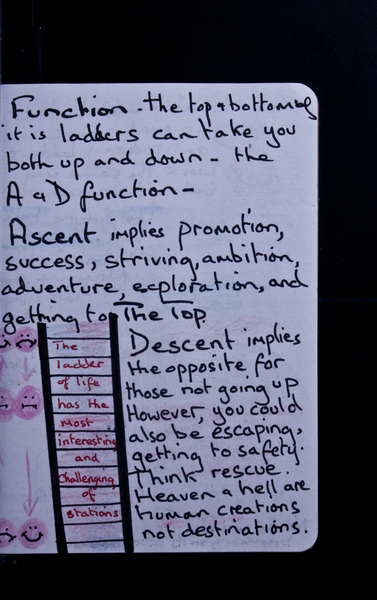 Function - the top & bottom of
it is ladders can take you
both up and down - the
A & D function -
Ascent implies promotion,
success, striving, ambition,
adventure, exploration, and
getting to The Top.
The
ladder
of life
has the
most
interesting
and
Challenging
of
stations
Descent implies
the opposite for
those not going up
However, you could
also be escaping,
getting to safety.
Think rescue.
Heaven & hell are
human creations
not destinations.